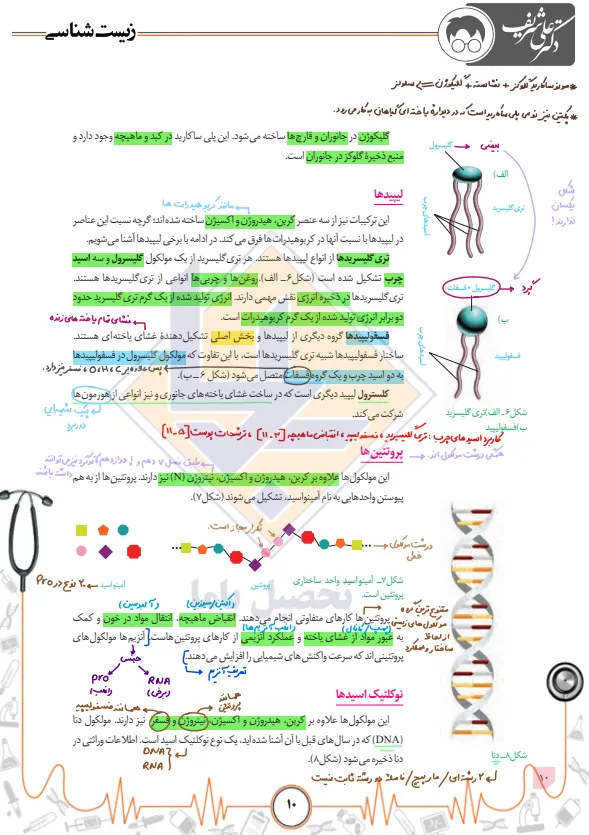 زیست شناسی
دکتر علی شریف
* مونوساکارید گلوکز + نشاسته + گلیکوژن
* پکتین نیز نوعی پلی ساکارید است که در دیوارهٔ یاخته ای گیاهان به کار می رود.
گلیکوژن در جانوران و قارچ‌ها ساخته می‌شود. این پلی ساکارید در کبد و ماهیچه وجود دارد و
منبع ذخیرهٔ گلوکز در جانوران است.
لیپیدها
مانند کربوهیدرات ها
این ترکیبات نیز از سه عنصر کربن، هیدروژن و اکسیژن ساخته شده‌اند؛ گرچه نسبت این عناصر
در لیپیدها با نسبت آنها در کربوهیدرات‌ها فرق می‌کند. در ادامه با برخی لیپیدها آشنا می‌شویم.
تری گلیسریدها از انواع لیپیدها هستند. هر تری‌گلیسرید از یک مولکول گلیسرول و سه اسید
چرب تشکیل شده است (شکل ۶ـ الف). روغن‌ها و چربی‌ها انواعی از تری‌گلیسریدها هستند.
تری گلیسریدها در ذخیره انرژی نقش مهمی دارند. انرژی تولید شده از یک گرم تری گلیسرید حدود
دو برابر انرژی تولید شده از یک گرم کربوهیدرات است.
غشای تمام یاخته های زنده
فسفولیپیدها گروه دیگری از لیپیدها و بخش اصلی تشکیل‌دهندهٔ غشای یاخته‌ای هستند.
ساختار فسفولیپیدها شبیه تری گلیسریدها است. با این تفاوت که مولکول گلیسرول در فسفولیپیدها
به دو اسید چرب و یک گروه فسفات متصل می‌شود (شکل ۶ ـ ب).
پس علاوه بر C و H و O ، فسفر نیز دارد.
کلسترول لیپید دیگری است که در ساخت غشای یاخته‌های جانوری و نیز انواعی از هورمون‌ها
شرکت می‌کند.
پیک شیمیایی دوربرد
کاربرد اسیدهای چرب: تری گلیسرید، فسفولیپید، انقباض ماهیچه [۳-۱۱]، ترشحات پوست [۵-۱۱]
گلیسرول
الف)
تری گلیسرید
اسیدهای چرب
شکل یکسان ندارند!
گلیسرول + فسفات
ب)
فسفولیپید
اسیدهای چرب
شکل ۶ـ الف) تری گلیسرید
ب) فسفولیپید
پروتئین‌ها
همگی درشت مولکول اند
این مولکول‌ها علاوه بر کربن، هیدروژن و اکسیژن، نیتروژن (N) نیز دارند. پروتئین‌ها از به هم
پیوستن واحدهایی به نام آمینواسید، تشکیل می‌شوند (شکل ۷).
تکرار مجاز است.
درشت مولکول خطی
۲۰ نوع در Pro
آمینواسید
پروتئین
شکل ۷ـ آمینواسید واحد ساختاری
پروتئین است.
متنوع ترین گروه مولکول های زیستی از لحاظ ساختار و عملکرد
(اکتین/میوزین)
پروتئین‌ها کارهای متفاوتی انجام می‌دهند. انقباض ماهیچه، انتقال مواد در خون و کمک
(پمپ/کانال)
(اغلب آنزیم ها)
به عبور مواد از غشای یاخته و عملکرد آنزیمی از کارهای پروتئین‌هاست. آنزیم‌ها مولکول‌های
پروتئینی اند که سرعت واکنش‌های شیمیایی را افزایش می‌دهند.
تعریف آنزیم
جنس
Pro (اغلب)
RNA (برخی)
نوکلئیک اسیدها
همانند پروتئین
همانند فسفولیپید
این مولکول‌ها علاوه بر کربن، هیدروژن و اکسیژن، نیتروژن و فسفر نیز دارند. مولکول دنا
(DNA) که در سال‌های قبل با آن آشنا شده‌اید، یک نوع نوکلئیک اسید است. اطلاعات وراثتی در
دنا ذخیره می‌شود (شکل ۸).
DNA
RNA
شکل ۸ـ دنا
۲ رشته ای / مارپیچ / فاصله دو رشته ثابت نیست
تحصیل یاما
۱۰
۱۰